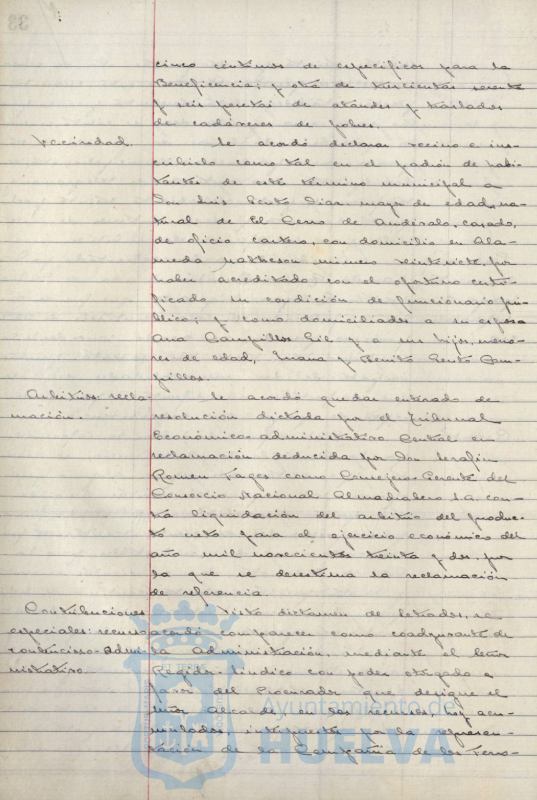 cinco céntimos de específicos para la
Beneficencia; y otra de trescientas setenta
y seis pesetas de ataudes y traslados
de cadáveres de pobres.
Vecindad.
Se acordó declarar vecino e ins-
cribirlo como tal en el padrón de habi-
tantes de este término municipal a
Don Luis Gento Diaz mayor de edad, na-
tural de El Cerro de Andévalo, casado,
de oficio cartero, con domicilio en Ala-
meda Matheson número veintisiete, por
haber acreditado con el oportuno certi-
ficado su condición de funcionario pú-
blico; y como domiciliados a su esposa
Ana Campillos Gil y a sus hijos, meno-
res de edad, Juana y Benito Gento Cam-
pillos.
Arbitrios: recla-
mación.
Se acordó quedar enterado de
resolución dictada por el Tribunal
Económico-administrativo Central en
reclamación deducida por Don Serafín
Romeu Fages como Consejero-Gerente del
Consorcio Nacional Almadrabero S.A. con-
tra liquidación del arbitrio del produc-
to neto para el ejercicio económico del
año mil novecientos treinta y dos, por
la que se desestima la reclamación
de referencia.
Contribuciones
especiales: recurso
contencioso-admi-
nistrativo.
Visto dictamen de letrados, se
acordó comparecer como coadyuvante de
la Administración, mediante el Señor
Regidor-Síndico con poder otorgado a
favor del Procurador que designe el
Señor Alcalde en los recursos, hoy acu-
mulados, interpuestos por la represen-
tación de la Compañía de los Ferro-
Ayuntamiento de
HUELVA